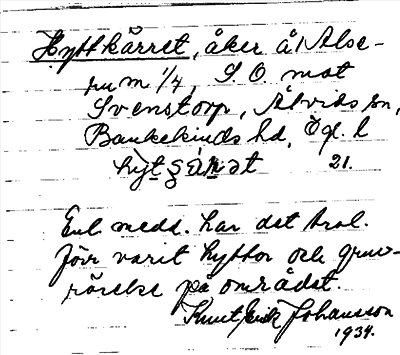 Hyttkärret, åker å Alse-
rum 1/4, S O mot
Svenstorp, Åtvids sn,
Bankekinds hd, Ögl. l
21.
Enl. medd. har det trol.
förr varit hyttor och gruv-
rörelse på området.
Knut Erik Johansson
1934.